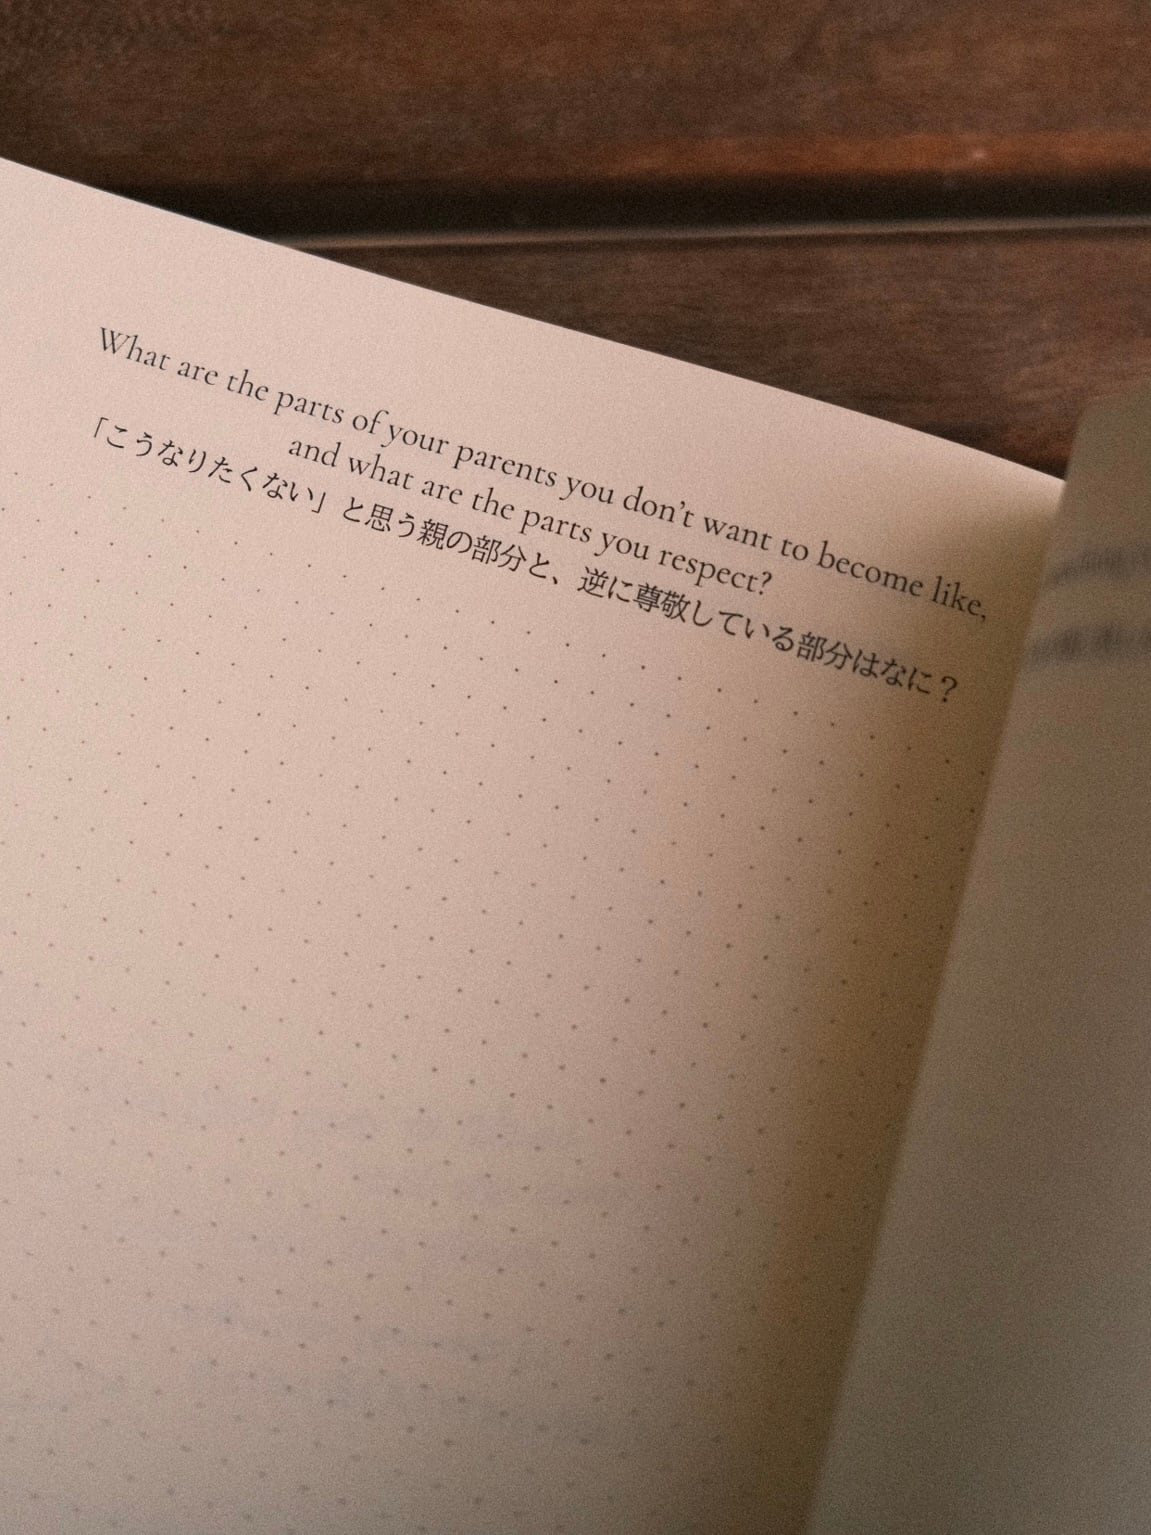 What are the parts of your parents you don't want to become like,
and what are the parts you respect?
「こうなりたくない」と思う親の部分と、逆に尊敬している部分はなに？